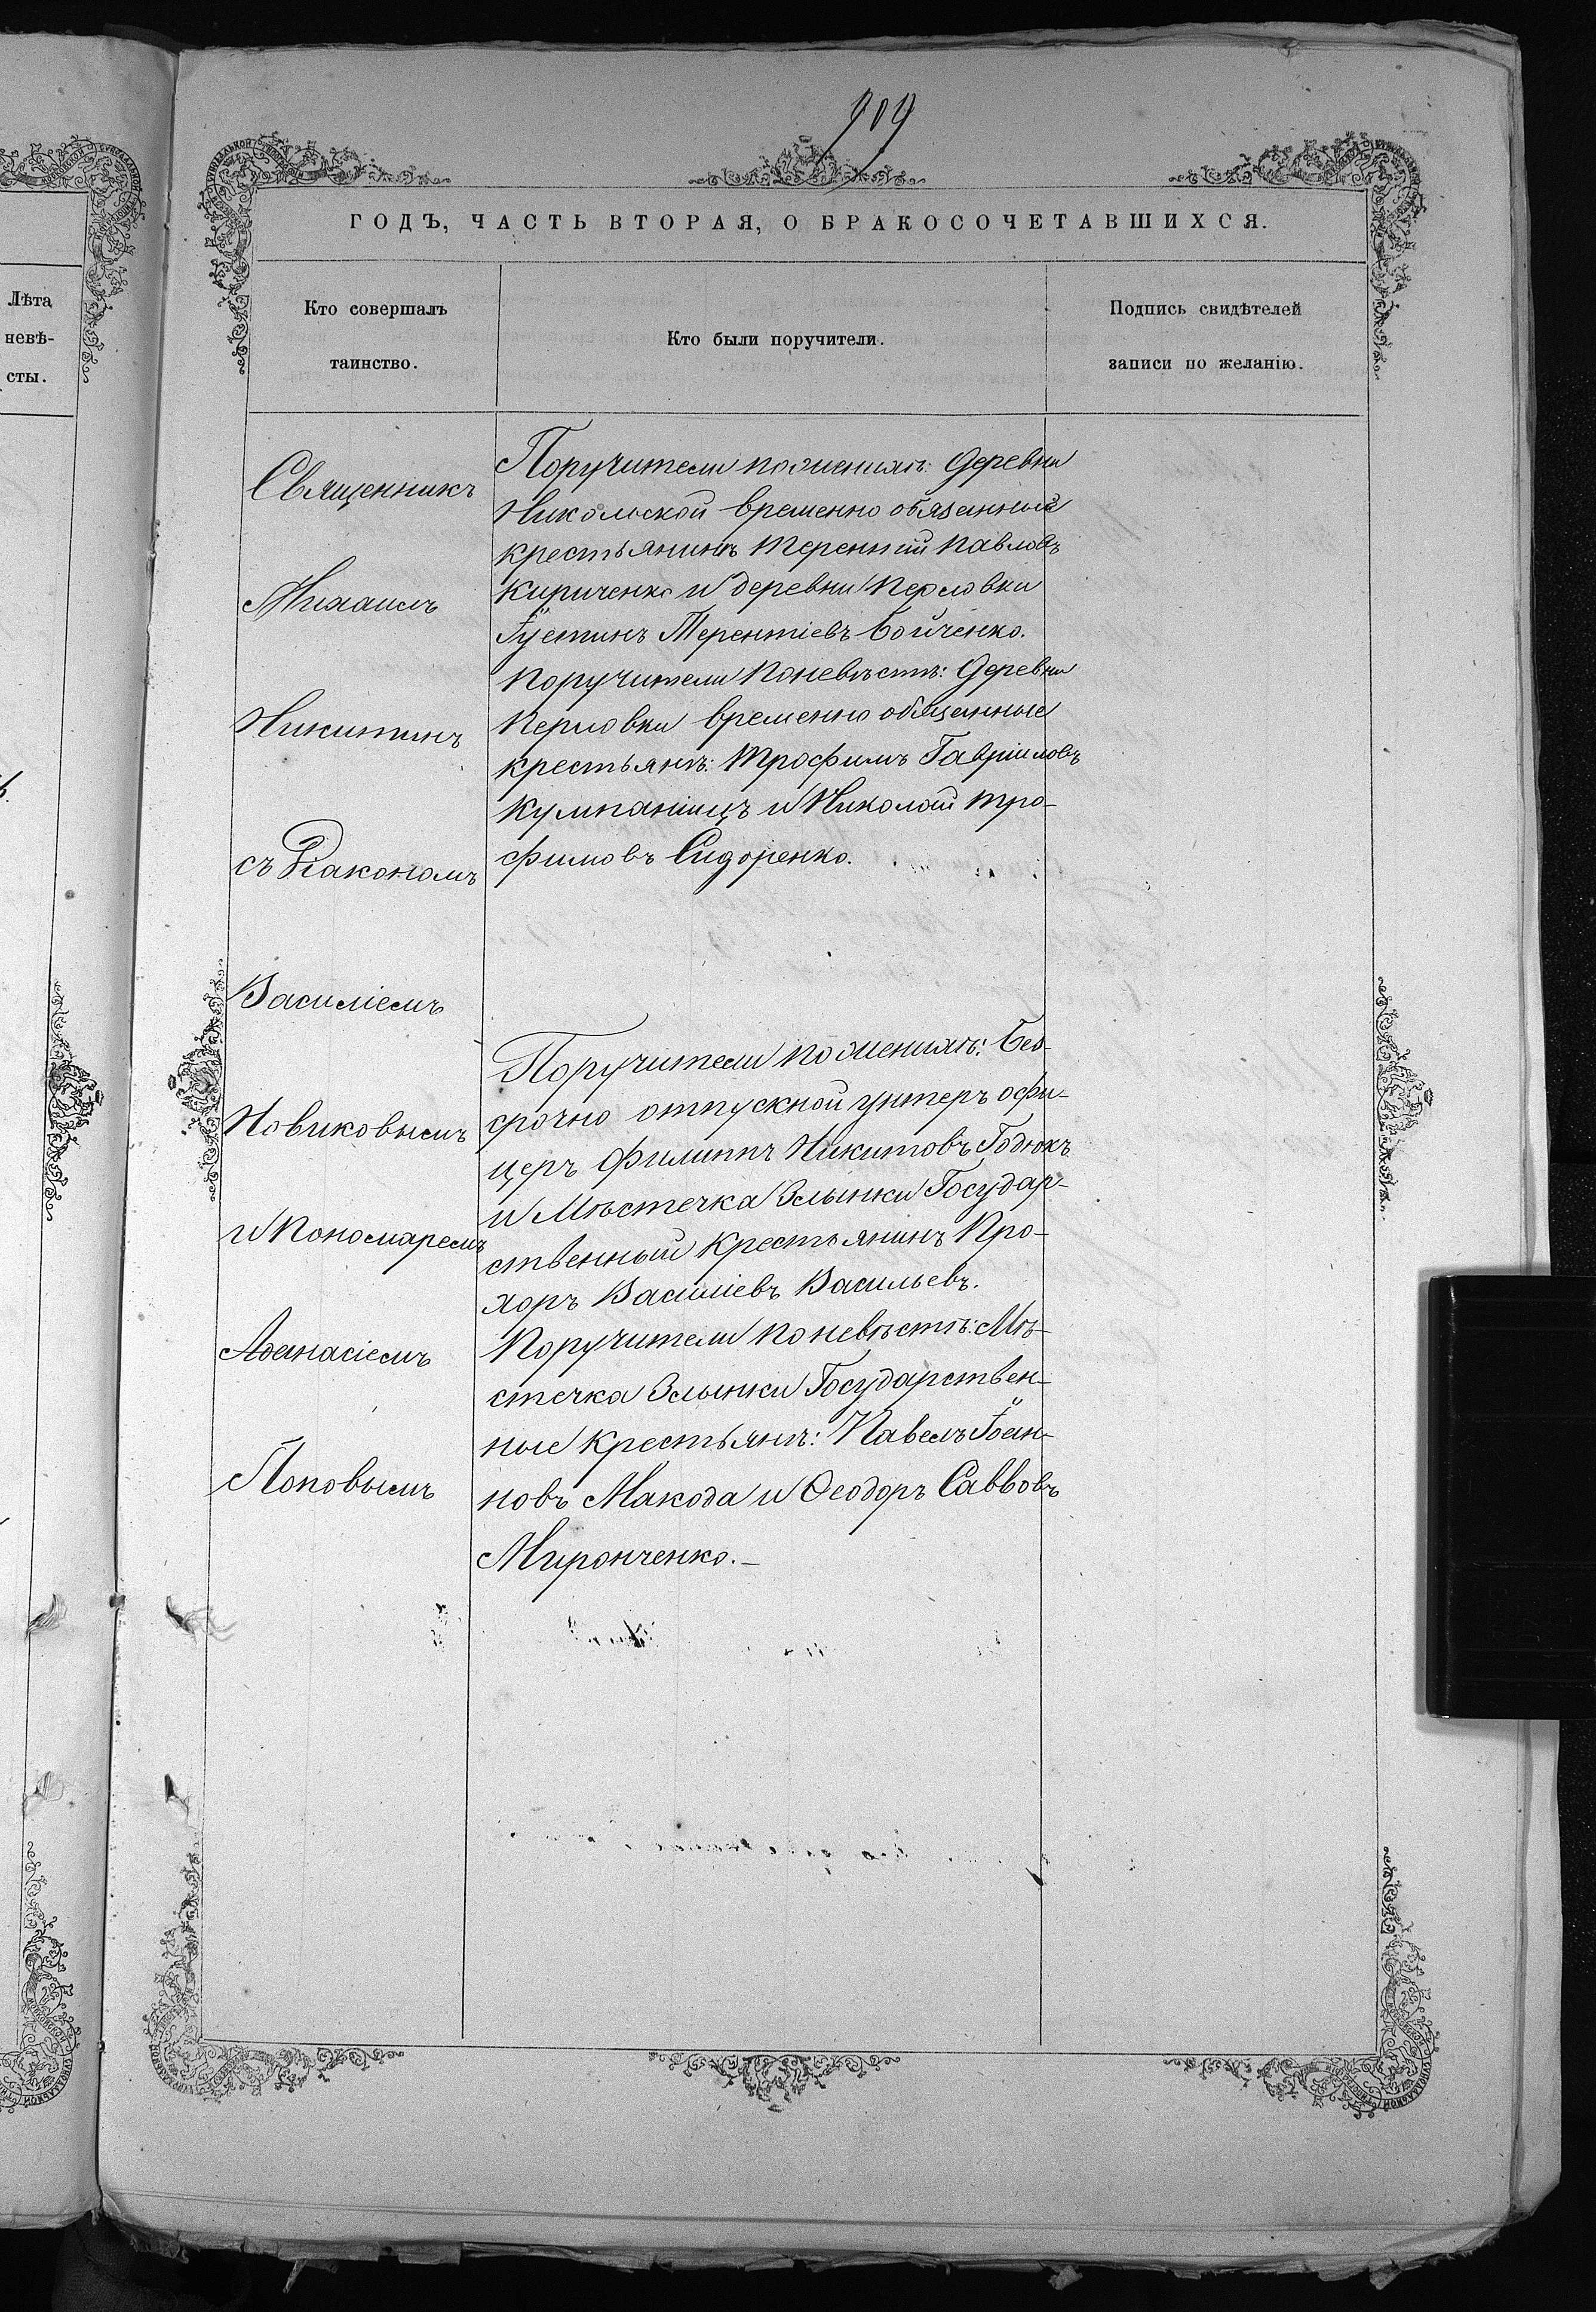 909
ГОДЪ, ЧАСТЬ ВТОРАЯ, О БРАКОСОЧЕТАВШИХСЯ.
Лѣта
невѣ-
сты.
Кто совершалъ
таинство.
Кто были поручители.
Подпись свидѣтелей
записи по желанію.
Священникъ
Михаилъ
Никитинъ
съ Діакономъ
Василіемъ
Новиковымъ
и Пономаремъ
Аѳанасіемъ
Поповымъ
Поручители по женихѣ: Деревни
Никольской временно обязанный
крестьянинъ Терентій Павловъ
Кириченко и деревни Перловки
Іустинъ Терентіевъ Бойченко.
Поручители по невѣстѣ: Деревни
Перловки временно обязанные
крестьянѣ: Трофимъ Гавріиловъ
Кумпаніицъ и Николай Тро-
фимовъ Сидоренко.
Поручители по женихѣ: Без-
срочно отпускной унтеръ офи-
церъ Филиппъ Никитовъ Годюкъ
и Мѣстечка Злынки Государ-
ственный крестьянинъ Про-
хоръ Василіевъ Васильевъ.
Поручители по невѣстѣ: Мѣ-
стечка Злынки Государствен-
ные крестьянѣ: Павелъ Іоан-
новъ Макода и Ѳеодоръ Саввовъ
Миронченко.-